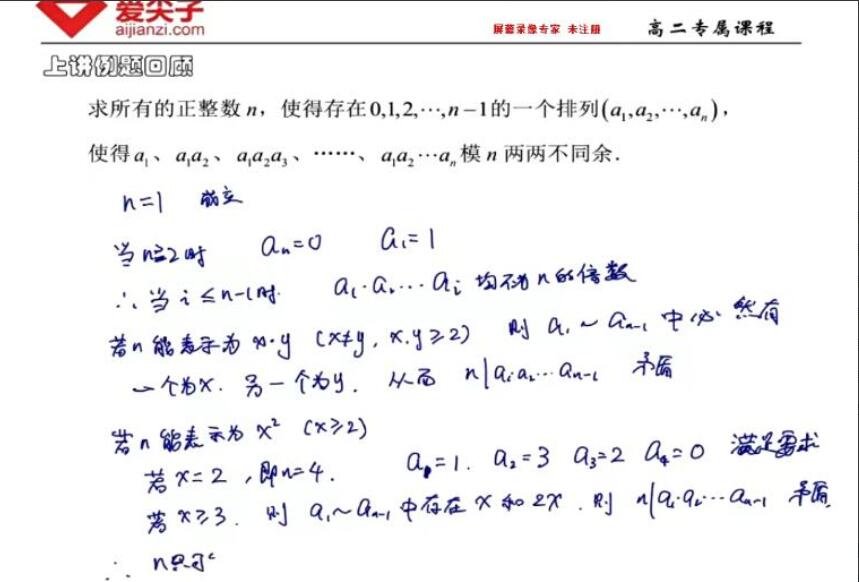 爱尖子
aijianzi.com
屏幕录像专家 未注册
高二专属课程
上讲例题回顾
求所有的正整数 n，使得存在0,1,2,⋯,n−1的一个排列(a₁,a₂,⋯,aₙ)，
使得a₁、a₁a₂、a₁a₂a₃、⋯⋯、a₁a₂⋯aₙ模 n 两两不同余．
n=1 成立
当n≥2时 aₙ=0 a₁=1
∴当 i≤n-1时 a₁·a₂⋯aᵢ 均不为n的倍数
若n能表示为 x·y (x≠y, x.y≥2) 则 a₁~aₙ₋₁ 中必然有
一个为x. 另一个为y. 从而 n|a₁a₂⋯aₙ₋₁ 矛盾
若n能表示为 x² (x≥2)
若 x=2, 即n=4. a₁=1. a₂=3 a₃=2 a₄=0 满足要求
若 x≥3. 则 a₁~aₙ₋₁ 中存在 x 和 2x. 则 n|a₁·a₂⋯aₙ₋₁ 矛盾
∴ n只可